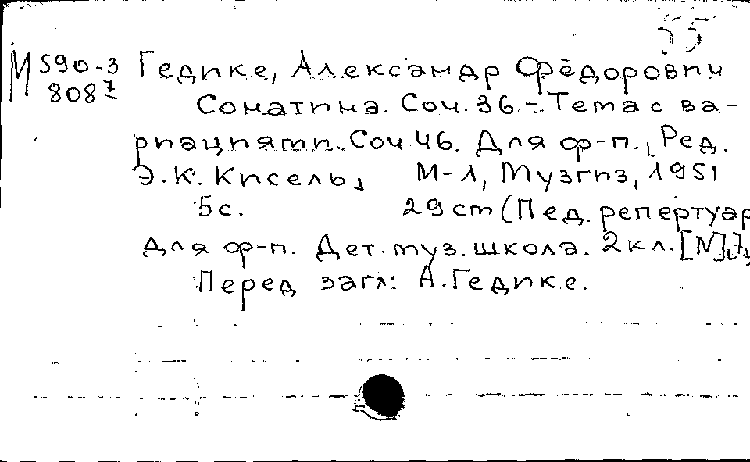 55
М 590-3 Гедике, Александр Фёдорович
8087 Сонатина. Соч. 36.-Тема с ва-
риациями. Соч 46. Для ф-п., Ред.
Э.К. Кисель, М-Л, Музгиз, 1951
5с. 29cm (Пед. репертуар
для ф-п. Дет. муз. школа. 2 кл.
Перед загл: А.Гедике.